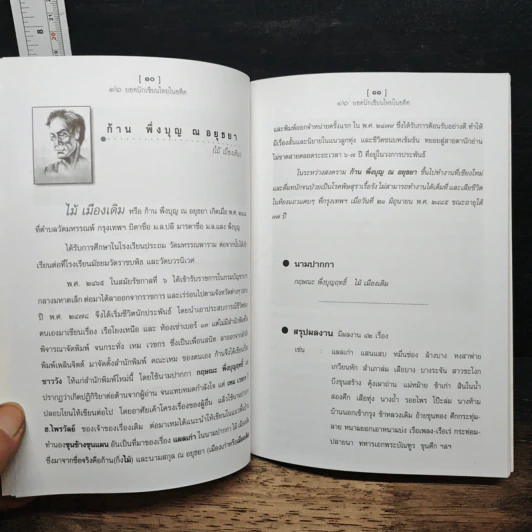 [ ๑๐ ]
๑/๒ ยอดนักเขียนไทยในอดีต
ก้าน พึ่งบุญ ณ อยุธยา
(ไม้ เมืองเดิม)
ไม้ เมืองเดิม หรือ ก้าน พึ่งบุญ ณ อยุธยา เกิดเมื่อ พ.ศ.
ที่ตำบลวัดมหรรณพ์ กรุงเทพฯ บิดาชื่อ ม.ล.ปลี มารดาชื่อ ม.ล.แสง พึ่งบุญ
ได้รับการศึกษาในโรงเรียนประถม วัดมหรรณพาราม ต่อจากนั้นได้เข้า
เรียนต่อที่โรงเรียนมัธยมวัดราชบพิธ และวัดบวรนิเวศ
พ.ศ. ๒๔๖๕ ในสมัยรัชกาลที่ ๖ ได้เข้ารับราชการในกรมบัญชาการ
กลางมหาดเล็ก ต่อมาได้ลาออกจากราชการ และเร่ร่อนไปตามจังหวัดต่างๆ
ปี พ.ศ. ๒๔๗๘ จึงได้เริ่มชีวิตนักประพันธ์ โดยนำเอาประสบการณ์ชีวิตของ
ตนเองมาเขียนเรื่อง เรือโยงเหนือ และ ห้องเช่าเบอร์ ๑๓ แต่ไม่มีสำนักพิมพ์
พิจารณาจัดพิมพ์ จนกระทั่ง เหม เวชกร ซึ่งเป็นเพื่อนสนิท ลาออกจาก
พิมพ์เพลินจิตต์ มาจัดตั้งสำนักพิมพ์ คณะเหม ของตนเอง ก้านจึงได้เขียนเรื่อง
ชาววัง ให้แก่สำนักพิมพ์ใหม่นี้ โดยใช้นามปากกา กฤษณะ พึ่งบุญ
ปรากฏว่าเกิดปฏิกิริยาต่อต้านจากผู้อ่าน จนแทบหมดกำลังใจ แต่ เหม เวชกร
ปลอบโยนให้เขียนต่อไป โดยอาศัยเค้าโครงเรื่องของผู้อื่น แล้วใช้นามปากกา
ฮ.ไพรวัลย์ ของเจ้าของเรื่องเดิม ต่อมาเหมได้แนะนำให้เขียนในแนวพื้นบ้าน
ทำนองขุนช้างขุนแผน อันเป็นที่มาของเรื่อง แผลเก่า ในนามปากกา ไม้ เมืองเดิม
ซึ่งมาจากชื่อจริงคือก้าน(กิ่งไม้) และนามสกุล ณ อยุธยา (เมืองเก่าหรือเมืองเดิม)
[ ๑๑ ]
๑/๒ ยอดนักเขียนไทยในอดีต
และพิมพ์ออกจำหน่ายครั้งแรก ใน พ.ศ. ๒๔๗๙ ซึ่งได้รับการต้อนรับอย่างดี ทำให้
มีเรื่องสั้นและนิยายในแนวลูกทุ่ง และชีวิตชนบทเข้มข้น ทยอยสู่สายตานักอ่าน
ไม่ขาดสายตลอดระยะเวลา ๖-๗ ปี ที่อยู่ในวงการประพันธ์
ในระหว่างสงคราม ก้าน พึ่งบุญ ณ อยุธยา ขึ้นไปทำงานที่เชียงใหม่
และดื่มหนักจนป่วยเป็นโรคพิษสุราเรื้อรัง ไม่สามารถทำงานได้เต็มที่ และเสียชีวิต
ในห้องแถวแคบๆ ที่กรุงเทพฯ เมื่อวันที่ ๒๑ มิถุนายน พ.ศ. ๒๔๘๕ ขณะอายุได้
๓๗ ปี
นามปากกา
กฤษณะ พึ่งบุญฤทธิ์ ไม้ เมืองเดิม
สรุปผลงาน มีผลงาน ๔๒ เรื่อง
เช่น : แผลเก่า แสนแสบ หมื่นซ่อง ล้างบาง หงสาพ่าย
เกวียนหัก สำเภาล่ม เสือบาง บางระจัน สาวชะโงก
บึงขุนสร้าง คุ้งเผาถ่าน แม่หม้าย ข้าเก่า สินในน้ำ
สองศึก เสือทุ่ง นางถ้ำ รอยไพร โป๊ะล้ม นางห้าม
บ้านนอกเข้ากรุง ข้าหลวงเดิม อ้ายขุนทอง ศึกกระทุ่ม-
ลาย หนามยอกเอาหนามบ่ง เรือเพลง-เรือเร่ กระท่อม-
ปลายนา ทหารเอกพระบัณฑูร ขุนศึก ฯลฯ